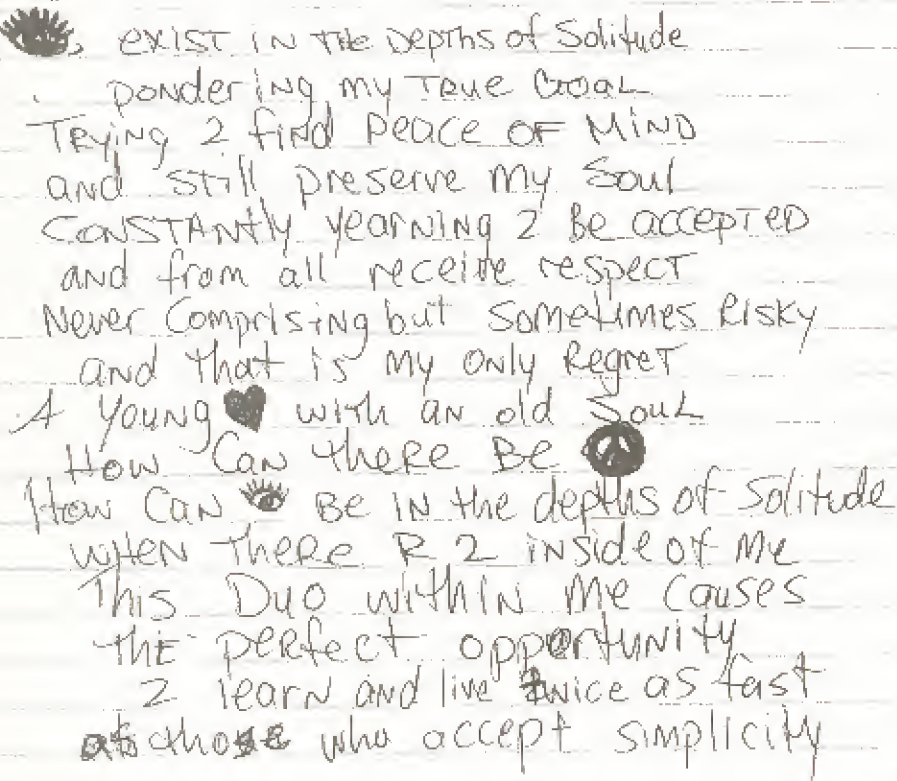 exist in the Depths of Solitude
pondering my True Goal
Trying 2 find peace of Mind
and still preserve my Soul
Constantly yearning 2 Be accepted
and from all receive respect
Never Comprising but sometimes Risky
and that is my only Regret
A Young ♥ with an old Soul
How Can there Be ☮
How Can 👁 Be in the depths of Solitude
when there R 2 inside of Me
This Duo within Me causes
the perfect opportunity
2 learn and live twice as fast
as those who accept simplicity